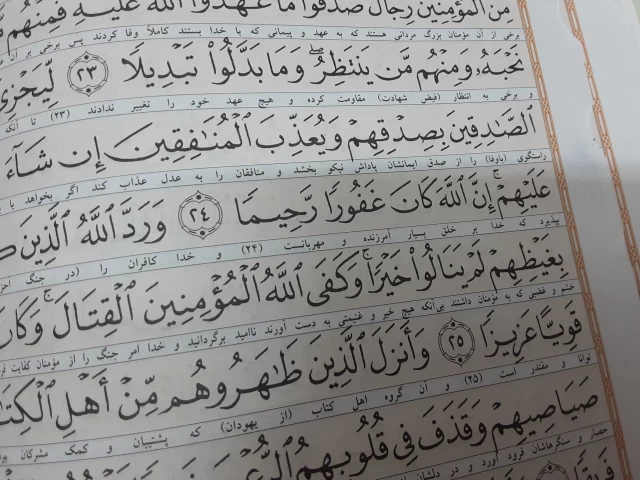 مِنَ ٱلْمُؤْمِنِينَ رِجَالٌ صَدَقُوا۟ مَا عَـٰهَدُوا۟ ٱللَّهَ عَلَيْهِ فَمِنْهُم
برخی از آن مؤمنان بزرگ مردانی هستند که به عهد و پیمانی که با خدا بستند کاملاً وفا کردند پس برخی بر آن
نَحْبَهُۥ وَمِنْهُم مَّن يَنتَظِرُ ۖ وَمَا بَدَّلُوا۟ تَبْدِيلًا ٢٣ لِّيَجْزِىَ
و برخی به انتظار (فیض شهادت) مقاومت کرده و هیچ عهد خود را تغییر ندادند (۲۳) تا آنکه
ٱلصَّـٰدِقِينَ بِصِدْقِهِمْ وَيُعَذِّبَ ٱلْمُنَـٰفِقِينَ إِن شَآءَ
راستگوی (باوفا) را از صدق ایمانشان پاداش نیکو بخشد و منافقان را به عدل عذاب کند اگر بخواهد یا
عَلَيْهِمْ ۚ إِنَّ ٱللَّهَ كَانَ غَفُورًا رَّحِيمًا ٢٤ وَرَدَّ ٱللَّهُ ٱلَّذِينَ
بپذیرد که خدا بر خلق بسیار آمرزنده و مهربانست (۲۴) و خدا کافران را (در جنگ
بِغَيْظِهِمْ لَمْ يَنَالُوا۟ خَيْرًا ۚ وَكَفَى ٱللَّهُ ٱلْمُؤْمِنِينَ ٱلْقِتَالَ ۚ وَكَانَ
خشم و غضبی که به مؤمنان داشتند بی‌آنکه هیچ خیر و غنیمتی به دست آورند ناامید برگردانید و خدا امر جنگ را از مؤمنان کفایت
قَوِيًّا عَزِيزًا ٢٥ وَأَنزَلَ ٱلَّذِينَ ظَـٰهَرُوهُم مِّنْ أَهْلِ ٱلْكِتَـ
توانا و مقتدر است (۲۵) و آن گروه اهل کتاب (از یهودان) که پشتیبان و کمک مشرکان
صَيَاصِيهِمْ وَقَذَفَ فِى قُلُوبِهِمُ ٱلرُّعْبَ
حصار و سنگرهاشان فرود آورد و در دلشان